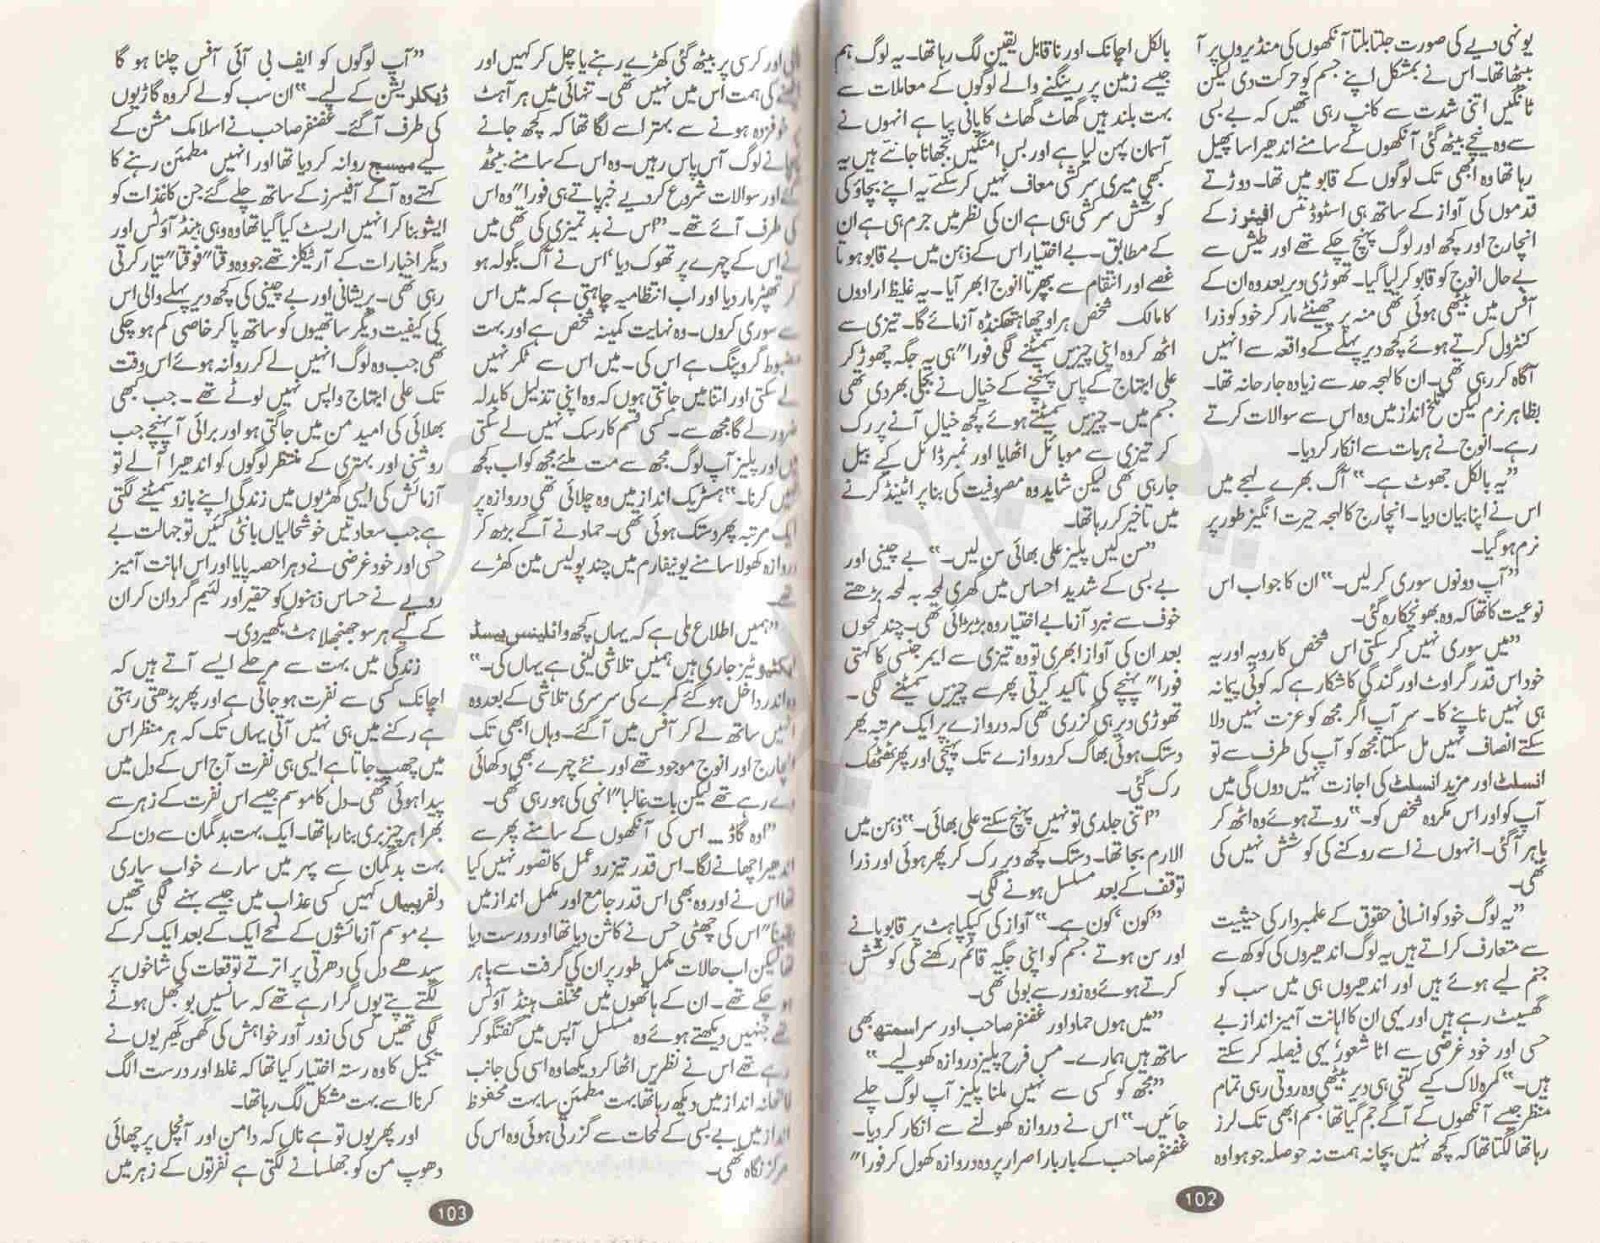 یونہی دیے کی صورت جلتا بلتا آنکھوں کی منڈیروں پر آ
بیٹھا تھا۔ اس نے بمشکل اپنے جسم کو حرکت دی لیکن
ٹانگیں اتنی شدت سے کانپ رہی تھیں کہ بے بسی
سے وہ نیچے بیٹھ گئی آنکھوں کے سامنے اندھیرا سا پھیل
رہا تھا وہ ابھی تک لوگوں کے قابو میں تھا۔ دوڑتے
قدموں کی آواز کے ساتھ ہی اسٹوڈنٹس افیئرز کے
انچارج اور کچھ اور لوگ پہنچ چکے تھے اور طیش سے
بے حال انوج کو قابو کر لیا گیا۔ تھوڑی دیر بعد وہ ان کے
آفس میں بیٹھی ہوئی تھی منہ پر چھینٹے مار کر خود کو ذرا
کنٹرول کرتے ہوئے کچھ دیر پہلے کے واقعہ سے انہیں
آگاہ کر رہی تھی۔ ان کا لہجہ حد سے زیادہ جارحانہ تھا۔
بظاہر نرم لیکن تلخ انداز میں وہ اس سے سوالات کرتے
رہے۔ انوج نے ہر بات سے انکار کر دیا۔
”یہ بالکل جھوٹ ہے۔“ آگ بھرے لہجے میں
اس نے اپنا بیان دیا۔ انچارج کا لہجہ حیرت انگیز طور پر
نرم ہو گیا۔
”آپ دونوں سوری کر لیں۔“ ان کا جواب اس
نوعیت کا تھا کہ وہ بھونچکا رہ گئی۔
”میں سوری نہیں کر سکتی اس شخص کا رویہ اور یہ
خود اس قدر گراوٹ اور گندگی کا شکار ہے کہ کوئی پیمانہ
ہی نہیں ناپنے کا۔ سر آپ اگر مجھ کو عزت نہیں دلا
سکتے انصاف نہیں مل سکتا مجھ کو آپ کی طرف سے تو
انسلٹ اور مزید انسلٹ کی اجازت نہیں دوں گی میں
آپ کو اور اس مکروہ شخص کو۔“ روتے ہوئے وہ اٹھ کر
باہر آ گئی۔ انہوں نے اسے روکنے کی کوشش نہیں کی
تھی۔
”یہ لوگ خود کو انسانی حقوق کے علمبردار کی حیثیت
سے متعارف کراتے ہیں یہ لوگ اندھیروں کی کوکھ سے
جنم لیے ہوئے ہیں اور اندھیروں ہی میں سب کو
گھسیٹ رہے ہیں اور یہی ان کا اہانت آمیز انداز بے
حسی اور خود غرضی سے اٹا شعور‘ یہی فیصلہ کر سکتے
ہیں۔“ کمرہ لاک کیے کتنی ہی دیر بیٹھی وہ روتی رہی تمام
منظر جیسے آنکھوں کے آگے جم گیا تھا جسم ابھی تک لرز
رہا تھا لگتا تھا کہ کچھ نہیں بچا نہ ہمت نہ حوصلہ جو ہوا وہ
بالکل اچانک اور ناقابل یقین لگ رہا تھا۔ یہ لوگ ہم
جیسے زمین پر رینگنے والے لوگوں کے معاملات سے
بہت بلند ہیں گھاٹ گھاٹ کا پانی پیا ہے انہوں نے
آسمان پہن لیا ہے اور بس امنگیں بجھانا جانتے ہیں یہ
کبھی میری سرکشی معاف نہیں کر سکتے یہ اپنے بچاؤ کی
کوشش سرکشی ہی ہے ان کی نظر میں جرم ہی ہے ان
کے مطابق۔ بے اختیار اس کے ذہن میں بے قابو ہوتا
غصے اور انتقام سے بپھرتا انوج ابھر آیا۔ یہ غلیظ ارادوں
کا مالک شخص ہر اوچھا ہتھکنڈہ آزمائے گا۔ تیزی سے
اٹھ کر وہ اپنی چیزیں سمیٹنے لگی فورا” ہی یہ جگہ چھوڑ کر
علی ابتہاج کے پاس پہنچنے کے خیال نے بجلی بھر دی تھی
جسم میں۔ چیزیں سمیٹتے ہوئے کچھ خیال آنے پر رک
کر تیزی سے موبائل اٹھایا اور نمبر ڈائل کیے بیل
جا رہی تھی لیکن شاید وہ مصروفیت کی بنا پر اٹینڈ کرنے
میں تاخیر کر رہا تھا۔
”سن لیں پلیز علی بھائی سن لیں۔“ بے چینی اور
بے بسی کے شدید احساس میں گھری لمحہ بہ لمحہ بڑھتے
خوف سے نبرد آزما بے اختیار وہ بڑبڑائی تھی۔ چند لمحوں
بعد ان کی آواز ابھری تو وہ تیزی سے ایمرجنسی کا کہتی
فورا” پہنچنے کی تاکید کرتی پھر سے چیزیں سمیٹنے لگی۔
تھوڑی دیر ہی گزری تھی کہ دروازے پر ایک مرتبہ پھر
دستک ہوئی بھاگ کر دروازے تک پہنچی اور پھر ٹھٹھک
رک گئی۔
”اتنی جلدی تو نہیں پہنچ سکتے علی بھائی۔“ ذہن میں
الارم بجا تھا۔ دستک کچھ دیر رک کر پھر ہوئی اور ذرا
توقف کے بعد مسلسل ہونے لگی۔
”کون‘ کون ہے۔“ آواز کی کپکپاہٹ پر قابو پانے
اور سن ہوتے جسم کو اپنی جگہ قائم رکھنے کی کوشش
کرتے ہوئے وہ زور سے بولی تھی۔
”میں ہوں حماد اور غضنفر صاحب اور سر اسمتھ بھی
ساتھ ہیں ہمارے۔ مس فرح پلیز دروازہ کھولیے۔“
”مجھ کو کسی سے نہیں ملنا پلیز آپ لوگ چلے
جائیں۔“ اس نے دروازہ کھولنے سے انکار کر دیا۔
غضنفر صاحب کے بار بار اصرار پر وہ دروازہ کھول کر فورا”
102
اور کرسی پر بیٹھ گئی کھڑے رہنے یا چل کر کہیں اور
کی ہمت اس میں نہیں تھی۔ تنہائی میں ہر آہٹ
خوفزدہ ہونے سے بہتر اسے لگا تھا کہ کچھ جانے
لوگ آس پاس رہیں۔ وہ اس کے سامنے بیٹھ
اور سوالات شروع کر دیے خبر پاتے ہی فورا” وہ اس
کی طرف آئے تھے۔ ”اس نے بدتمیزی کی تھی میں
نے اس کے چہرے پر تھوک دیا‘ اس نے آگ بگولہ ہو
کر تھپڑ مار دیا اور اب انتظامیہ چاہتی ہے کہ میں اس
سے سوری کروں۔ وہ نہایت کمینہ شخص ہے اور بہت
مضبوط گروپنگ ہے اس کی۔ میں اس سے ٹکر نہیں
لے سکتی اور اتنا میں جانتی ہوں کہ وہ اپنی تذلیل کا بدلہ
ضرور لے گا مجھ سے۔ کسی قسم کا رسک نہیں لے سکتی
میں اور پلیز آپ لوگ مجھ سے مت ملئے مجھ کو اب کچھ
نہیں کرنا۔“ ہسٹریک انداز میں وہ چلائی تھی دروازہ پر
ایک مرتبہ پھر دستک ہوئی تھی۔ حماد نے آگے بڑھ کر
دروازہ کھولا سامنے یونیفارم میں چند پولیس مین کھڑے
تھے۔
”ہمیں اطلاع ملی ہے کہ یہاں کچھ وائلینس بیسڈ
ایکٹیویٹیز جاری ہیں ہمیں تلاشی لینی ہے یہاں کی۔“
وہ اندر داخل ہو گئے کمرے کی سرسری تلاشی کے بعد وہ
انہیں ساتھ لے کر آفس میں آ گئے۔ وہاں ابھی تک
انچارج اور انوج موجود تھے اور نئے چہرے بھی دکھائی
دے رہے تھے لیکن بات غالبا” انہی کی ہو رہی تھی۔
”اوہ گاڈ... اس کی آنکھوں کے سامنے پھر سے
اندھیرا چھانے لگا۔ اس قدر تیز رد عمل کا تصور نہیں کیا
تھا اس نے اور وہ بھی اس قدر جامع اور مکمل انداز میں
یقینا” اس کی چھٹی حس نے کاشن دیا تھا اور درست دیا
تھا لیکن اب حالات مکمل طور پر ان کی گرفت سے باہر
ہو چکے تھے۔ ان کے ہاتھوں میں مختلف ہینڈ آؤٹس
تھے جنہیں دیکھتے ہوئے وہ مسلسل آپس میں گفتگو کر
رہے تھے اس نے نظریں اٹھا کر دیکھا وہ اسی کی جانب
فاتحانہ انداز میں دیکھ رہا تھا بہت مطمئن سا بہت محفوظ
انداز میں بے بسی کے لمحات سے گزرتی ہوئی وہ اس کی
مرکز نگاہ تھی۔
”آپ لوگوں کو ایف بی آئی آفس چلنا ہو گا
ڈیکلریشن کے لیے۔“ ان سب کو لے کر وہ گاڑیوں
کی طرف آ گئے۔ غضنفر صاحب نے اسلامک مشن کے
لیے میسج روانہ کر دیا تھا اور انہیں مطمئن رہنے کا
کہتے وہ آگے آفیسرز کے ساتھ چلے گئے جن کاغذات کو
ایشو بنا کر انہیں اریسٹ کیا گیا تھا وہ وہی ہینڈ آؤٹس اور
دیگر اخبارات کے آرٹیکلز تھے جو وہ وقتا” فوقتا” تیار کرتی
رہی تھی۔ پریشانی اور بے چینی کی کچھ دیر پہلے والی اس
کی کیفیت دیگر ساتھیوں کو ساتھ پا کر خاصی کم ہو چکی
تھی جب وہ لوگ انہیں لے کر روانہ ہوئے اس وقت
تک علی ابتہاج واپس نہیں لوٹے تھے۔ جب کبھی
بھلائی کی امید من میں جاگتی ہو اور برائی آ پہنچے جب
روشنی اور بہتری کے منتظر لوگوں کو اندھیرا آ لے تو
آزمائش کی ایسی گھڑیوں میں زندگی اپنے بازو سمیٹنے لگتی
ہے جب سعادتیں خوشحالیاں بانٹی گئیں تو جہالت بے
حسی اور خود غرضی نے دہرا حصہ پایا اور اس اہانت آمیز
رویے نے حساس ذہنوں کو حقیر اور لئیم گردان کر ان
کے لیے ہر سو جھنجھلاہٹ بکھیر دی۔
زندگی میں بہت سے مرحلے ایسے آتے ہیں کہ
اچانک کسی سے نفرت ہو جاتی ہے اور پھر بڑھتی رہتی
ہے رکنے میں ہی نہیں آتی یہاں تک کہ ہر منظر اس
میں چھپ جاتا ہے ایسی ہی نفرت آج اس کے دل میں
پیدا ہوئی تھی۔ دل کا موسم جیسے اس نفرت کے زہر سے
بھرا ہر چیز بری بنا رہا تھا۔ ایک بہت بدگمان سے دن کے
بہت بدگمان سے پہر میں سارے خواب ساری
دلفریبیاں کہیں کسی عذاب میں جیسے بہنے لگی تھیں
بے موسم آزمائشوں کے لمحے ایک کے بعد ایک کر کے
سیدھے دل کی دھرتی پر اترتے توقعات کی شاخوں پر
لگتے پتے یوں گرا رہے تھے کہ سانسیں بوجھل ہونے
لگی تھیں کسی کی زور آور خواہش کی گھمن گھیریوں نے
تکمیل کا وہ رستہ اختیار کیا تھا کہ غلط اور درست الگ
کرنا اسے بہت مشکل لگ رہا تھا۔
اور پھر یوں تو ہے ناں کہ دامن اور آنچل پر چھائی
دھوپ من کو جھلسانے لگتی ہے نفرتوں کے زہر میں
103